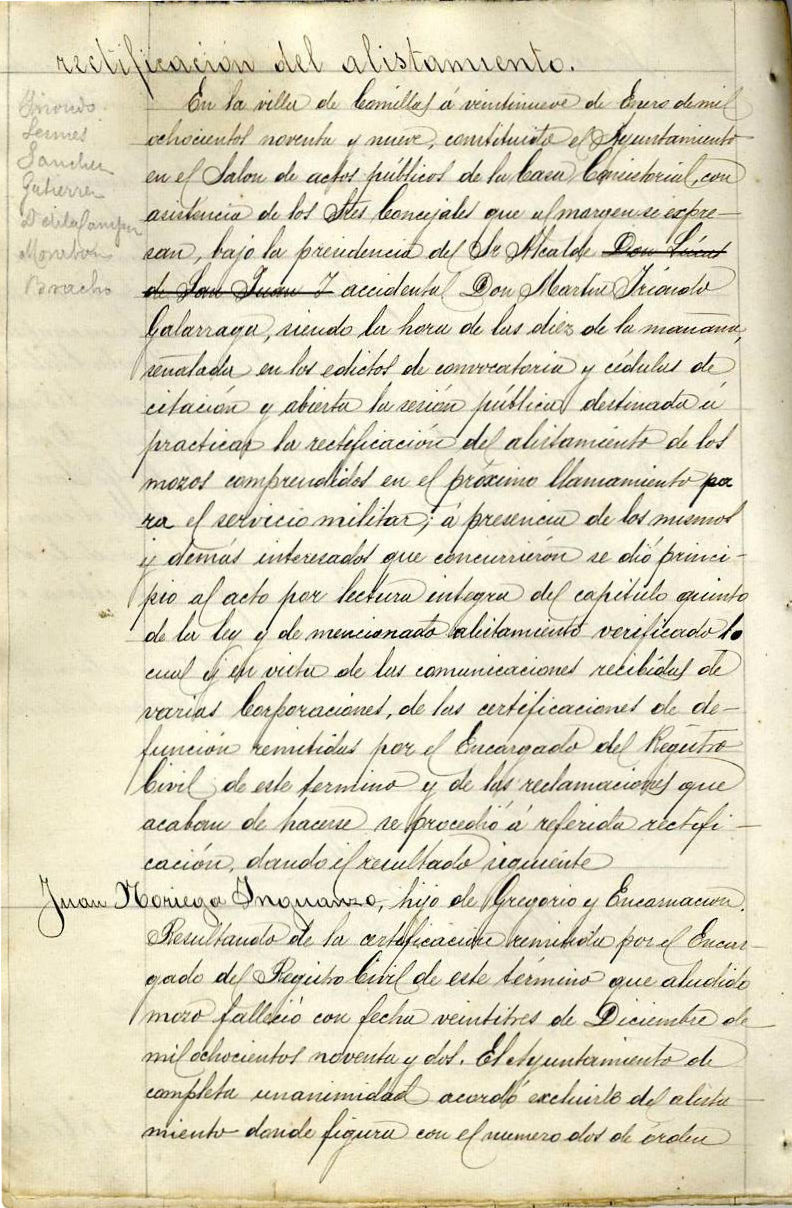 rectificación del alistamiento.
Iriondo
Lesmes
Sanchez
Gutierrez
D. de la Campa
Movellan
Bracho
En la villa de Comillas á veintinueve de Enero de mil
ochocientos noventa y nueve, constituido el Ayuntamiento
en el Salon de actos públicos de la Casa Consistorial, con
asistencia de los Sres Concejales que al margen se expre-
san, bajo la presidencia del Sr Alcalde Don Lúcas
de San Juan y accidental Don Martin Irióndo
Galarraga, siendo la hora de las diez de la mañana,
señalada en los edictos de convocatoria y cédulas de
citación y abierta la sesión pública destinada á
practicar la rectificación del alistamiento de los
mozos comprendidos en el próximo llamamiento pa
ra el servicio militar; á presencia de los mismos
y demás interesados que concurrierón se dió princi-
pio al acto por lectura integra del capitulo quinto
de la ley y de mencionado alistamiento verificado lo
cual y en vista de las comunicaciones recibidas de
varias Corporaciones, de las certificaciones de de-
función remitidas por el Encargado del Registro
Civil de este termino y de las reclamaciones que
acaban de hacerse se procedió á referida rectifi-
cación, dando el resultado siguiente
Juan Noriega Inguanzo, hijo de Gregorio y Encarnacion.
Resultando de la certificación remitida por el Encar-
gado del Registro Civil de este término que aludido
mozo falleció con fecha veintitres de Diciembre de
mil ochocientos noventa y dos. El Ayuntamiento de
completa unanimidad acordó excluirle del alista-
miento donde figura con el numero dos de órden